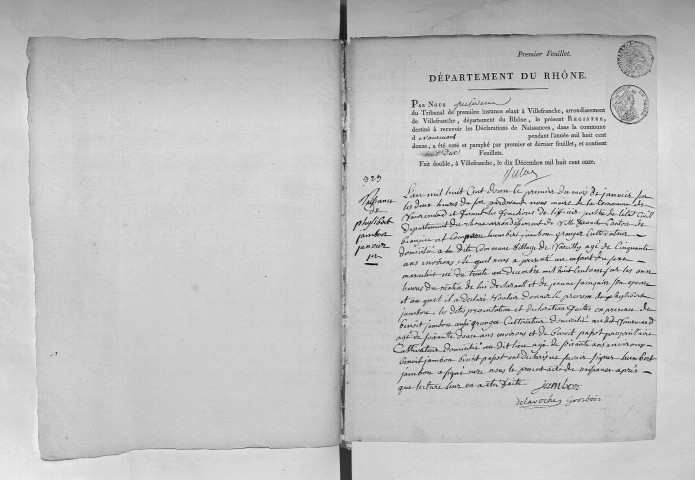 Premier Feuillet.
DÉPARTEMENT DU RHÔNE.
PAR NOUS président
du Tribunal de première instance séant à Villefranche, arrondissement
de Villefranche, département du Rhône, le présent REGISTRE,
destiné à recevoir les Déclarations de Naissances, dans la commune
d pendant l'année mil huit cent
douze, a été coté et paraphé par premier et dernier feuillet, et contient
Feuillets.
Fait double, à Villefranche, le dix Décembre mil huit cent onze.
Naissance
de
philibert
jambon
janvier
1er
L'an mil huit Cent douze le premier du mois de janvier sur
les deux heures du soir pardevant nous maire de la Commune de
Vauxrenard et faisant les fonctions de l'officier public de l'état Civil
département du rhône arrondissement de Villefranche Canton de
beaujeu est Comparu humbert jambon granger Cultivateur
domicilié a la dite Commune village de agé de Cinquante
ans environs, le quel nous a presenté un enfant du sexe
masculin né du trente un decembre mil huit Cent onze sur les onze
heures du matin de lui déclarant et de son epouse
et au quel il a declaré Vouloir donner le prenom de philibert
jambon. les dites presentation et declaration faites en presence de
benoit jambon aussi granger Cultivateur domicilié au dit Vauxrenard
agé de soixante douze ans environs et de benoit papot proprietaire
Cultivateur domicilié au dit lieu agé de soixante ans environs
benoit jambon benoit papot ont declaré ne savoir signer humbert
jambon a signé avec nous le present acte de naissance après
que lecture leur en a été faite
jambon